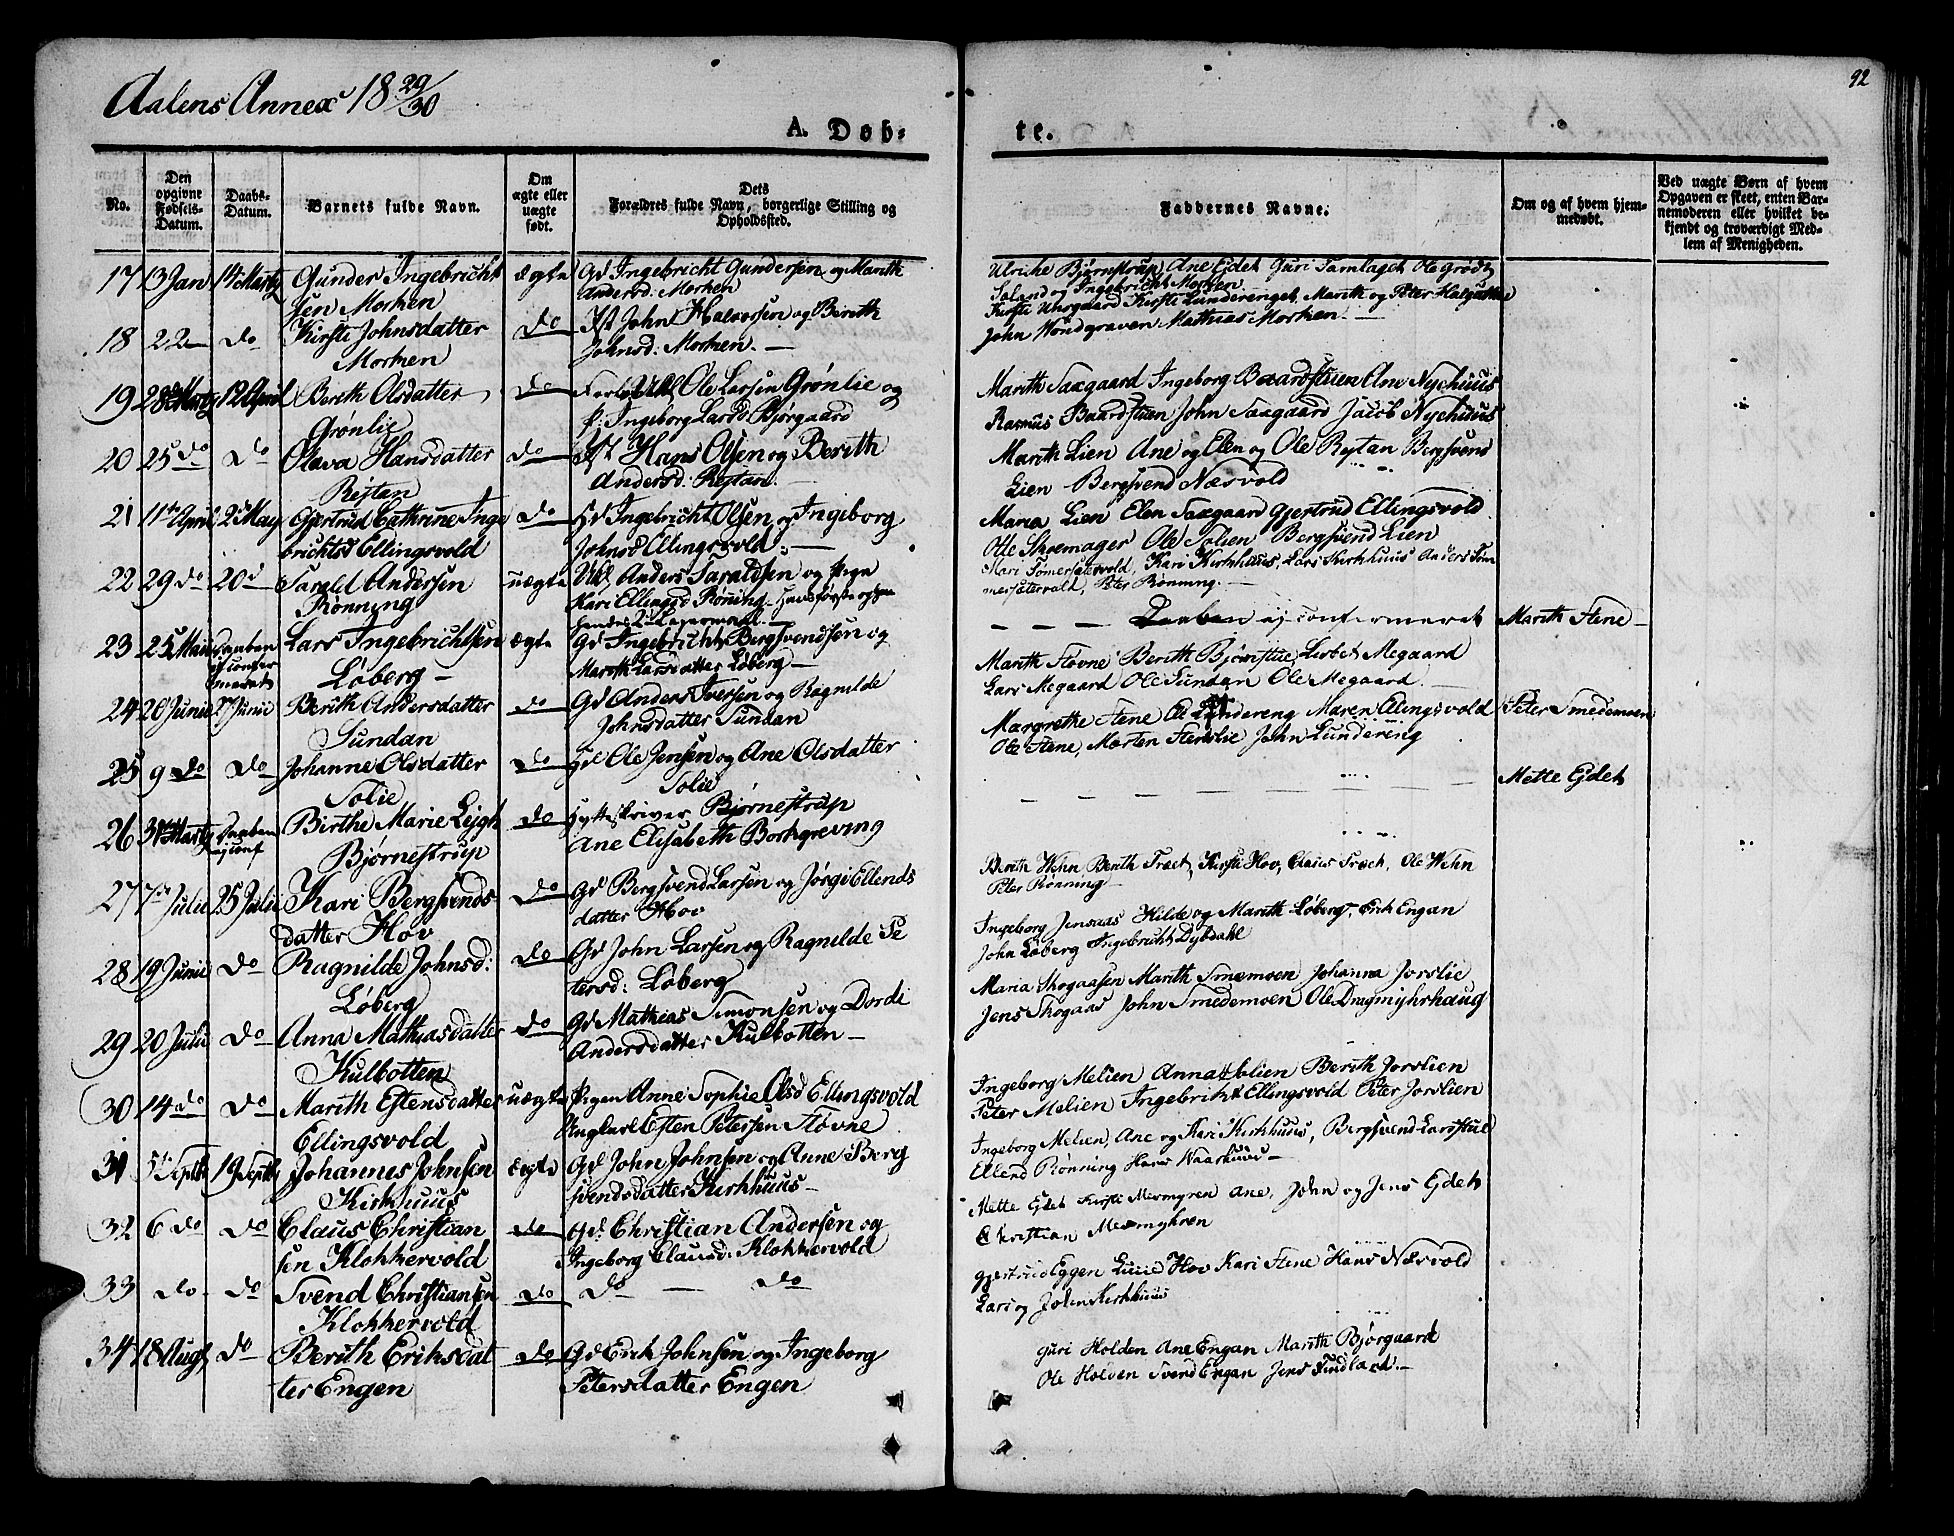 Aalens Annex 18 29/30
92
A. Døb-
te.
No.
Den opgivne Fødsels-Datum.
Daabs-Datum.
Barnets fulde Navn.
Om ægte eller uægte født.
Dets Forældres fulde Navn, borgerlige Stilling og Opholdsted.
Faddernes Navne.
Om og af hvem hjemmedøbt.
Ved uægte Børn af hvem Opgaven er skeet, enten Barnemoderen eller hvilket bekjendt og troværdigt Medlem af Menigheden.
17 13 Jan 14 Martz Gunder Ingebricht ægte Gd Ingebricht Gundersen og Marith
sen Morken Andersd: Morken
Ulriche Bjørnstrup, Ane Ejdet Guri Tamlaget Ole Grødt
Soland og Ingebricht Morken
18 22 do Kirsti Johnsdatter do Ist John Halvorsen og Berith
Morken Johnsd: Morken.
Kirsti Lunderenget, Marith og Peter
John Mathias Morken
19 28de Martz 12 April Berith Olsdatter do Ole Larsen Grønlie og
Grønlie P: Ingeborg Larsd Bjørgaard
Marith Saxgaard Ingeborg Baardstuen Ane Nyehuus
Rasmus Baardstuen John Saxgaard Jacob Nyehuus
20 25 do do Olava Hansdatter do Ist Hans Olsen og Berith
Rejtan Andersd: Rejtan.
Marith Lien Ane og Elen og Ole Rejtan Bergsvend
Lien Bergsvend Næsvold
21 11te April 2d May Gjertrud Cathrine Inge do Gd Ingebricht Olsen og Ingeborg
brichtsd Ellingsvold Johnsd Ellingsvold
Maria Lien Elen Saxgaard Gjertrud Ellingsvold
Otte Skoemager Ole Solien Bergsvend Lien
22 29 do 20 d Sarald Andersen uægte Ukl Anders Saraldsen og Pige
Rønning Kari Ellingsd Rønning. hans første og
hendes 2
Mari Sømersætervold, Kari Kirkhuus, Lars Kirkhuus Anders Søm
mersætervold, Peter Rønning.
23 25 Mai Daaben ej confirmeret Lars Ingebrichtsen ægte Gd Ingebricht Bergsvendsen og
Løberg Marith Larsdatter Løberg
Daaben ej confirmeret Marith Stene
24 20 Junie 27 Junie Berith Andersdatter do Gd Anders Iversen og Ragnilde
Sundan Johnsdatter Sundan
Marith Støvne Berith Bjørnstue, Lisbet Megaard
Lars Megaard Ole Sundan Ole Megaard
25 9 do do Johanne Olsdatter do Gd Ole Jensen og Ane Olsdatter
Solie Solie
Margrethe Stene Lundereng Maren Elingsvold Peter Smedemoen
Ole Stene, Morten Stenslie John Lundereng
26 31 Martz Daaben ej conf Birthe Marie Lejgh do Hytteskriver Bjørnestrup
Bjørnestrup Ane Elisabeth Borchgreving
Mette Ejdet
27 7de Julie 25 Julie Kari Bergsvends do Gd Bergsvend Larsen og Jørgi Ellends
datter Hov datter Hov
Berith Wehn Berith Træet, Kirsti Hov, Claus Træet, Ole Wehn
Peter Rønning
28 19 Junie do Ragnilde Johnsd: do Gd John Larsen og Ragnilde Pe
Løberg tersd: Løberg
Ingeborg Jensaas Hilde og Marith Løberg, Erik Engan
John Løberg Ingebricht Dybdahl
29 20 Julie do Anna Mathiasdatter do Gd Mathias Simonsen og Dordi
Kulbotten Andersdatter Kulbotten
Maria Skogaasen Marith Smæmoen Johanna Jorslie
Jens Skogaas John Smedemoen Ole Drøgmyhrhaug
30 14 do do Marith Estensdatter uægte Pigen Anne Sophie Olsd Ellingsvold
Ellingsvold Ungkarl Esten Petersen Støvne
Ingeborg Melien Anna Melien Berith Jorslien
Peter Melien Ingebricht Ellingsvold Peter Jorslien
31 5te Septbr 19 Septbr Johannes Johnsen ægte Gd John Johnsen og Anne Berg
Kirkhuus svendsdatter Kirkhuus
Ingeborg Melien, Ane og Kari Kirkhuus, Bergsvend Larsstue
Ellend Rønning Hans Waarhuus
32 6 do do Claus Christian do Gd: Christian Andersen og
sen Klokkervold Ingeborg Clausd: Klokkervold
Mette Ejdet Kirsti Mesmyren Ane, John og Jens Ejdet
Christian Mesmyhren
33 do do Svend Christiansen do do do
Klokkervold
Gjertrud Eggen Lucie Hov Kari Stene Hans Næsvold
Lars og John Kirkhuus
34 18 Augs do Berith Eriksdat do Gd Erik Johnsen og Ingeborg
ter Engen Petersdatter Engen
Guri Holden Ane Engan Marith Bjørgaard
Ole Holden Svend Engan Jens